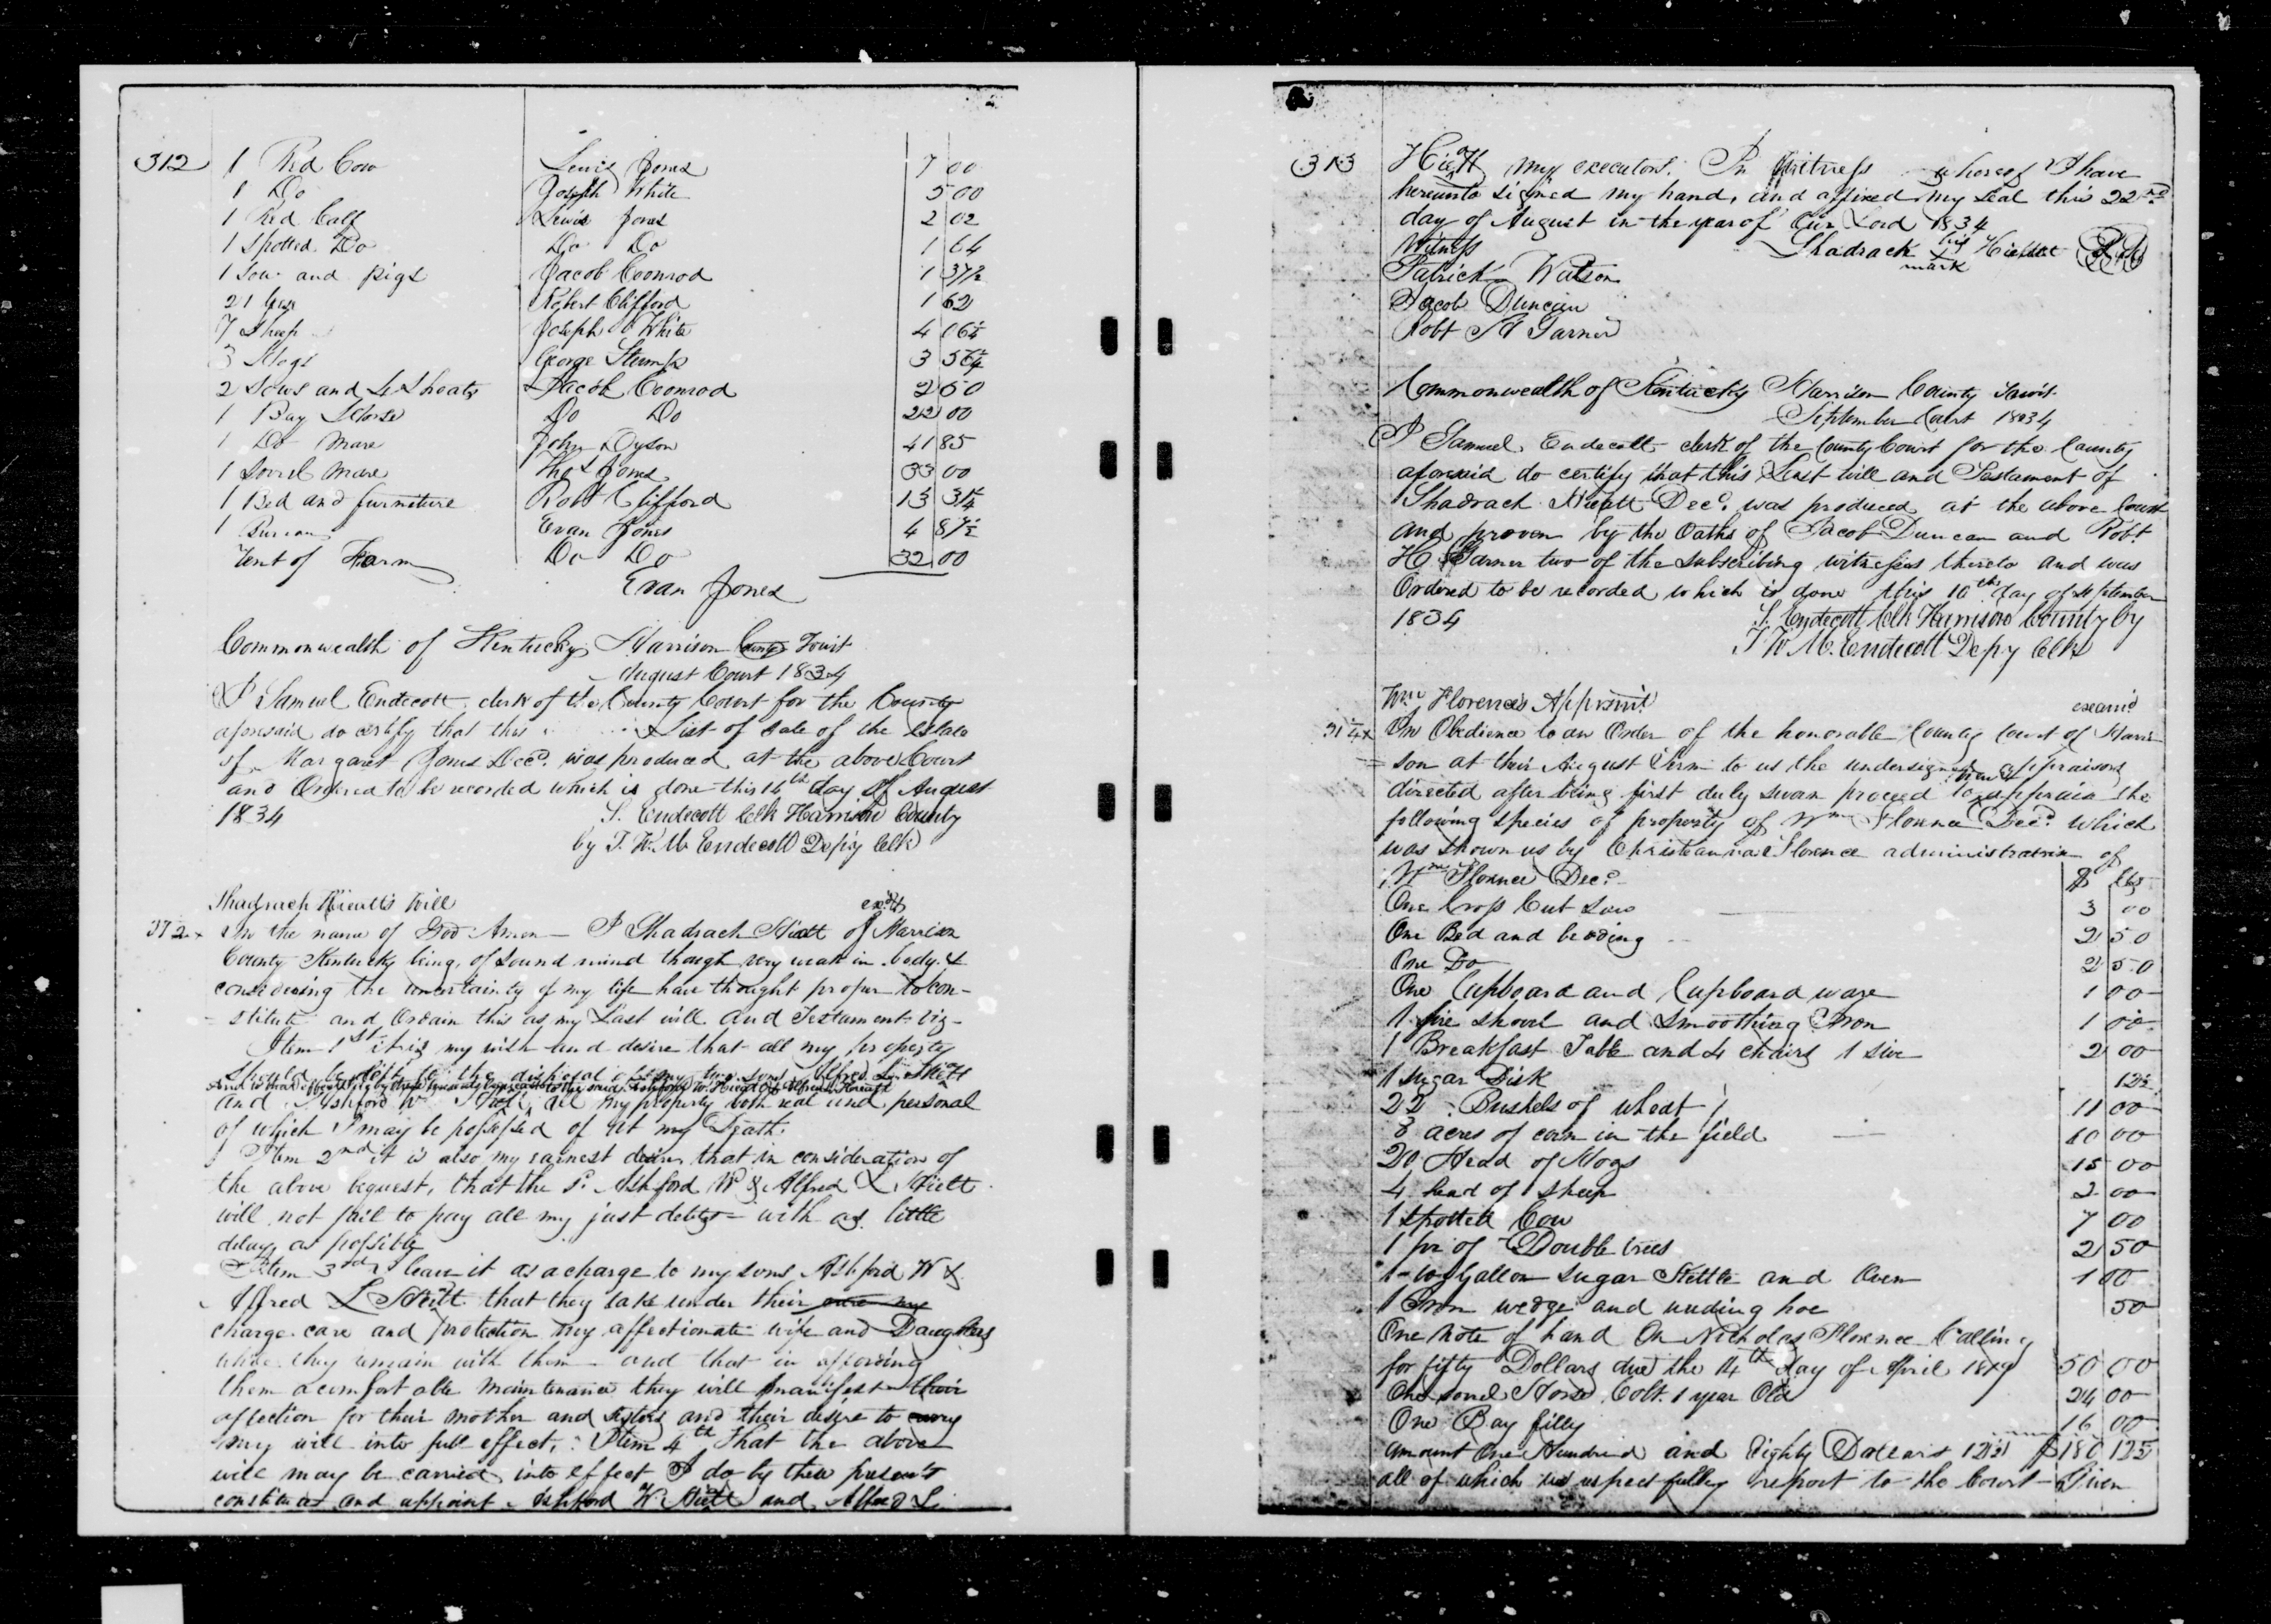 312 1 Red Cow Lewis Jones 7 00
1 Do Joseph White 5 00
1 Red Calf Lewis Jones 2 02
1 Spotted Do Do Do 1 64
1 Sow and pigs Jacob Coonrod 1 37½
21 Geese Robert Clifford 1 62
7 Sheep Joseph White 4 06¼
3 Hogs George Stump 3 56¼
2 Sows and 4 Shoats Jacob Coonrod 2 50
1 Bay Horse Do Do 22 00
1 Do mare John Dyson 41 85
1 Sorrel mare Thos Jones 33 00
1 Bed and furniture Robt Clifford 13 31¼
1 Bureau Evan Jones 4 87½
rent of Farm Do Do 32 00
Evan Jones
Commonwealth of Kentucky Harrison County Towit
August Court 1834
I Samuel Endecott clerk of the County Court for the County
aforesaid do certify that this List of Sale of the Estate
of Margaret Jones Decd. was produced at the above Court
and Ordered to be recorded which is done this 16th day of August
1834 S. Endecott Clk Harrison County
by T. W. M. Endecott Depy Clk
Shadrach Hieatts Will
372 x In the name of God Amen I Shadrach Hieatt of Harrison
County Kentucky being of sound mind though very weak in body &
considering the uncertainty of my life have thought proper to con-
- stitute and Ordain this as my Last will and Testament viz-
Item 1st it is my wish and desire that all my property
should be left to the disposal of my two sons Alfred L. Hieatt
and Ashford W Hieatt, all my property both real and personal
of which I may be possessed of at my Death.
Item 2nd it is also my earnest desire that in consideration of
the above bequest, that the sd. Ashford W & Alfred L Hieatt
will not fail to pay all my just debts with as little
delay as possible
Item 3rd I leave it as a charge to my sons Ashford W &
Alfred L Hieatt that they take under their care my
charge care and protection my affectionate wife and Daughters
while they remain with them and that in affording
them a comfortable maintenance they will manifest their
affection for their mother and sisters and their desire to carry
my will into full effect. Item 4th That the above
will may be carried into effect I do by these presents
constitute and appoint Ashford W. Hieatt and Alfred L.
313 Hieatt my executors. In Witness whereof I have
hereunto signed my hand, and affixed my seal this 22nd
day of August in the year of Our Lord 1834
Witness Shadrack his x mark Hieatt
Patrick Watson
Jacob Duncan
Robt H Garner
Commonwealth of Kentucky Harrison County Towit
September Court 1834
I Samuel Endecott clerk of the County Court for the County
aforesaid do certify that this Last will and Testament of
Shadrach Hieatt Decd. was produced at the above Court
and proven by the Oaths of Jacob Duncan and Robt
H Garner two of the subscribing witnesses thereto and was
Ordered to be recorded which is done this 10th day of September
1834 S. Endecott Clk Harrison County by
T W M. Endecott Depy Clk
Wm Florences Appraismt
examd
314 x In Obedience to an Order of the honorable County Court of Harri
= son at their August Term to us the undersigned appraisors
directed after being first duly sworn proceed to appraise the
following species of property of Wm Florence Decd. which
was shown us by Christeanna Florence administratrix of
Wm Florence Decd. $ Cts
One Cross Cut Saw 3 00
One Bed and bedding 2 50
One Do 2 50
One Cupboard and Cupboard ware 1 00
1 fire shovel and Smoothing Iron 1 00
1 Breakfast Table and 4 chairs 1 sive 2 00
1 sugar Disk 12½
22 Bushels of wheat 11 00
8 acres of corn in the field 40 00
20 Head of Hogs 15 00
4 head of sheep 2 00
1 spotted Cow 7 00
1 pr of Double trees 2 50
1 - 10 Gallon sugar Kettle and Oven 1 00
1 Iron wedge and weeding hoe 50
One note of hand On Nicholas Florence Calling
for fifty Dollars due the 14th day of April 1819 50 00
One sorrel Horse Colt. 1 year Old 24 00
One Bay filly 16 00
amount One Hundred and Eighty Dollars 12½ $180 12½
all of which we respectfully report to the Court - Given